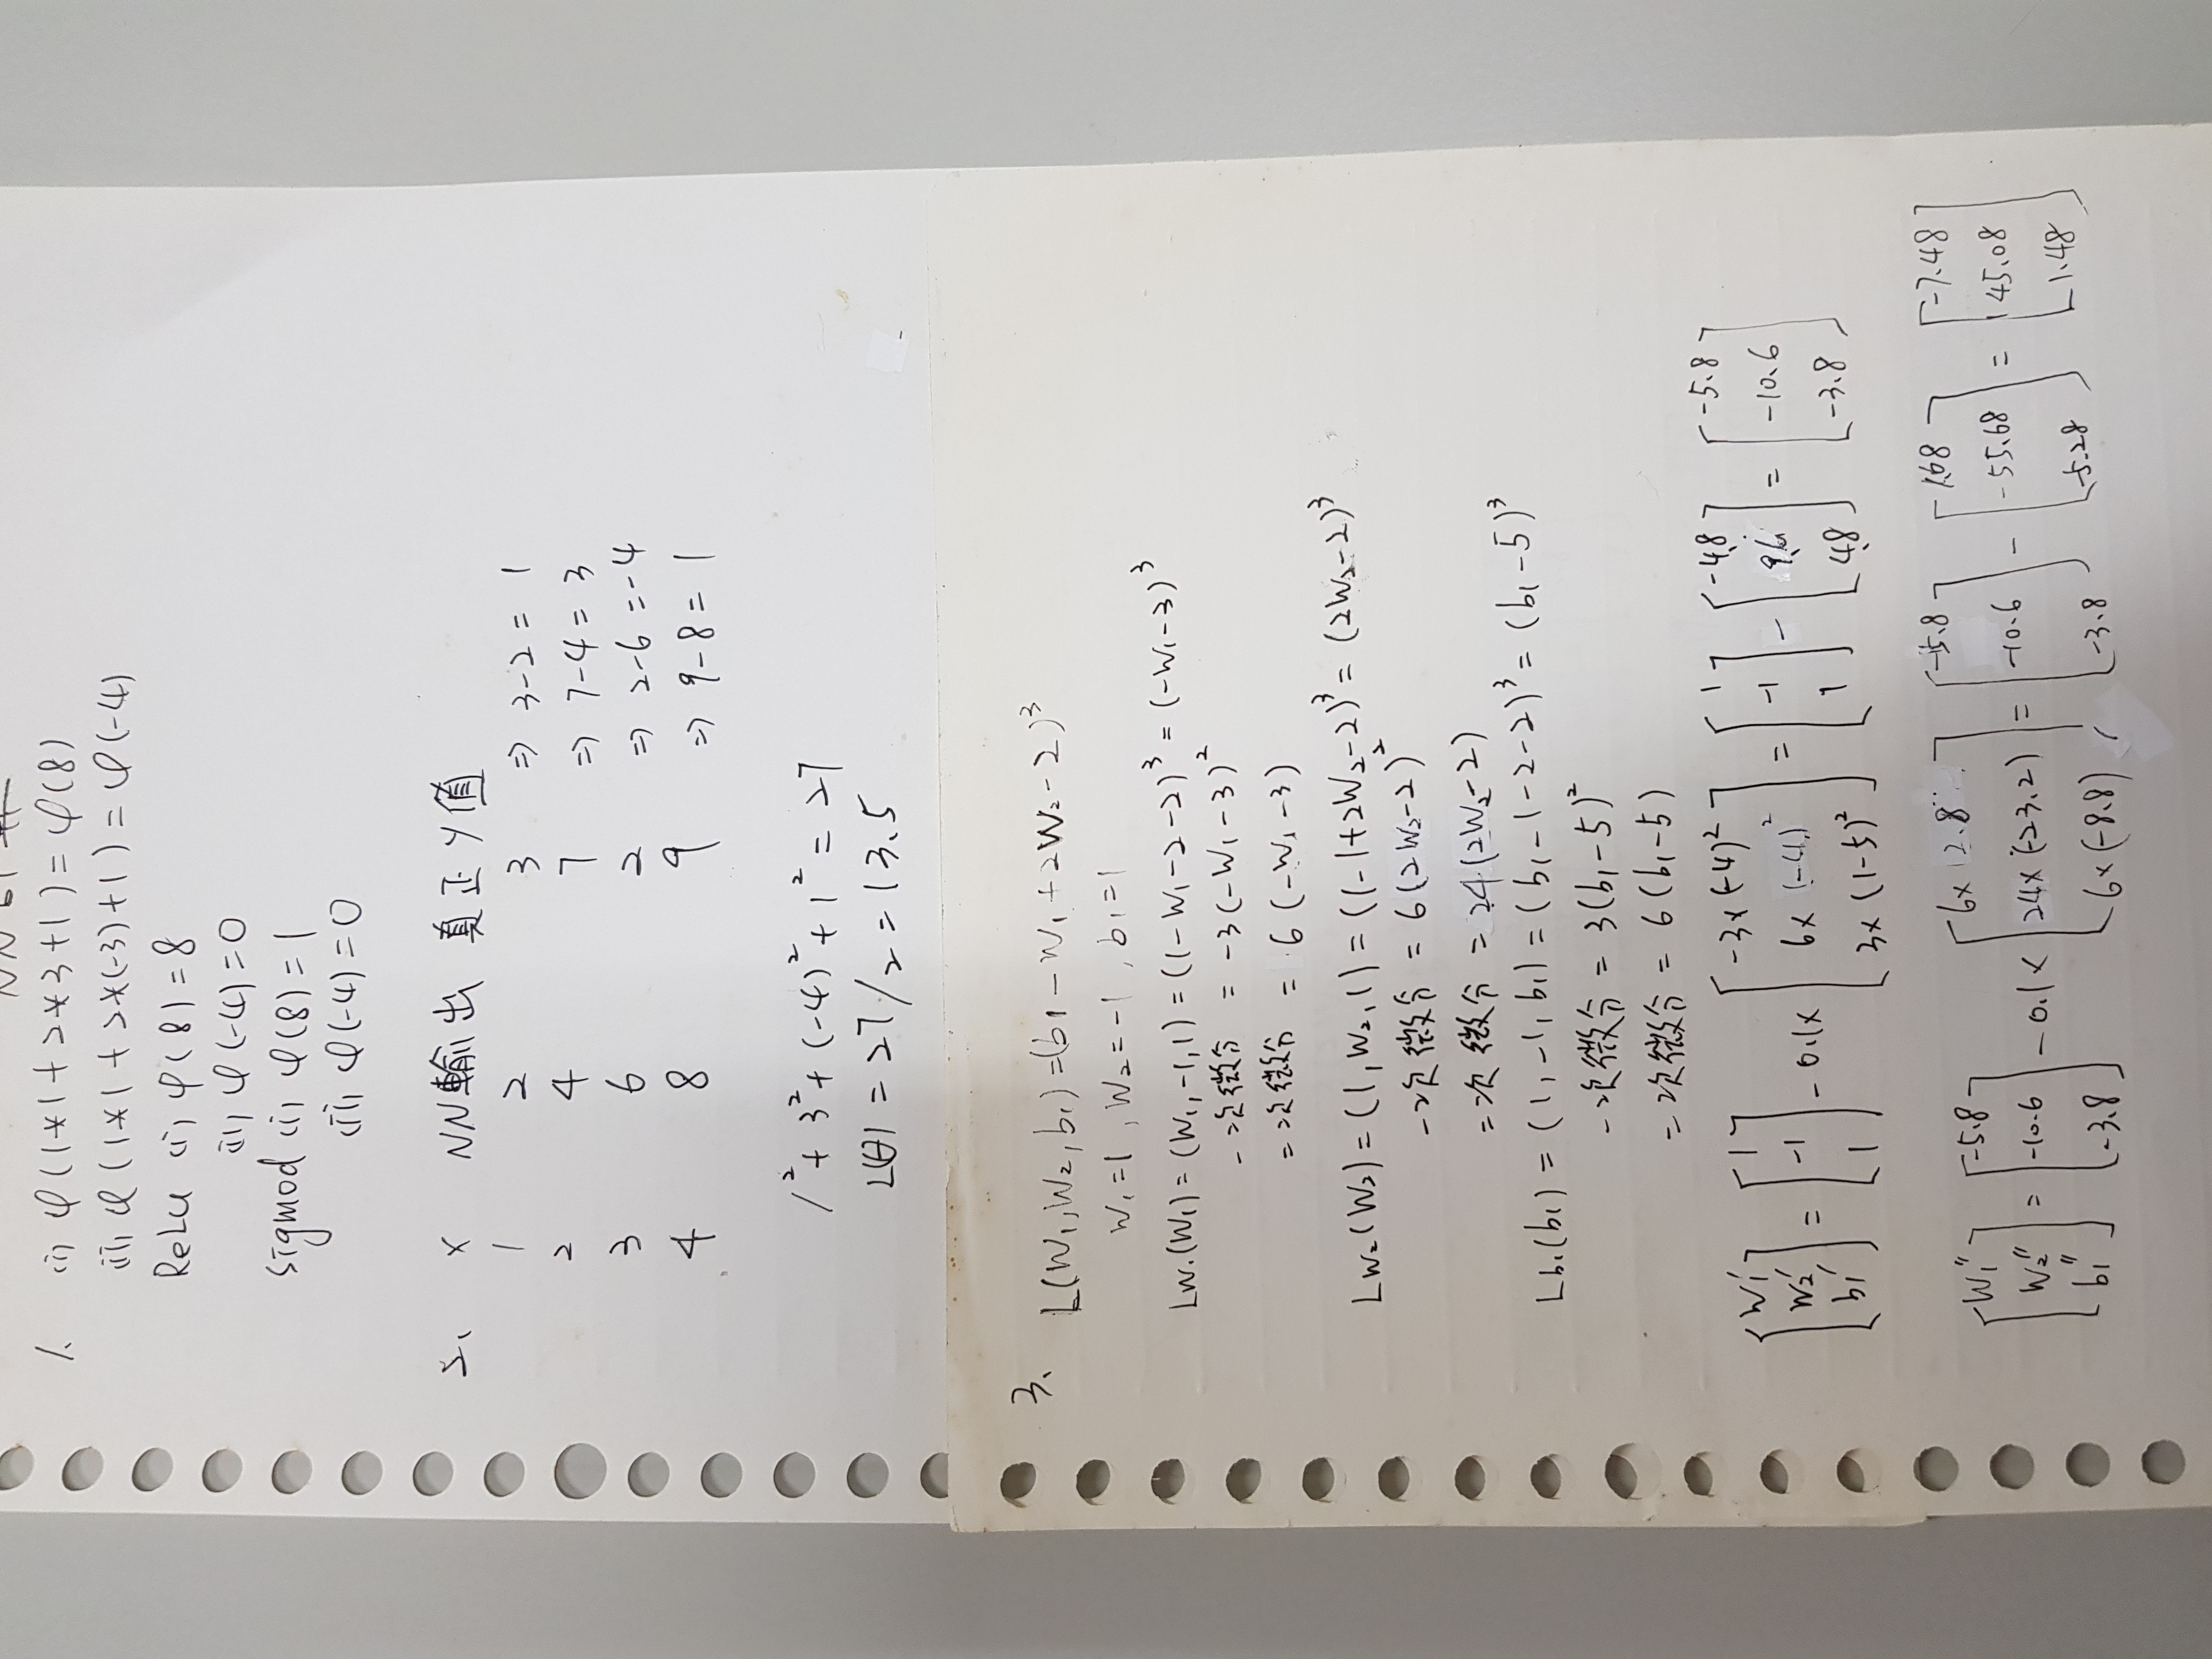 1. (i) φ(1*1+2*3+1)=φ(8)
(ii) φ(1*1+2*(-3)+1)=φ(-4)
ReLu (i) φ(8)=8
(ii) φ(-4)=0
sigmod (i) φ(8)=1
(ii) φ(-4)=0
2. x NN輸出 真正Y值
1 2 3 => 3-2=1
2 4 7 => 7-4=3
3 6 2 => 2-6=-4
4 8 9 => 9-8=1
1²+3²+(-4)²+1²=27
L(θ)=27/2=13.5
3. L(W₁,W₂,b₁)=(b₁-W₁+2W₂-2)³
W₁=1, W₂=-1, b₁=1
Lw₁(W₁)=(W₁,-1,1)=(1-W₁-2-2)³=(-W₁-3)³
一次微分 = -3(-W₁-3)²
二次微分 = 6(-W₁-3)
Lw₂(W₂)=(1,W₂,1)=(1-1+2W₂-2)³=(2W₂-2)³
一次微分 = 6(2W₂-2)²
二次微分 = 24(2W₂-2)
Lb₁(b₁)=(1,-1,b₁)=(b₁-1-2-2)³=(b₁-5)³
一次微分 = 3(b₁-5)²
二次微分 = 6(b₁-5)
[W₁' W₂' b₁'] = [1 -1 1] - 0.1x [-3x(-4)² 6x(-4)² 3x(1-5)²] = [1 -1 1] - [-4.8 9.6 4.8] = [-5.8 -10.6 -3.8]
[W₁'' W₂'' b₁''] = [-5.8 -10.6 -3.8] - 0.1x [6x 2.8 24x(-23.2) 6x(-8.8)] = [-5.8 -10.6 -3.8] - [1.68 -55.68 -5.28] = [-7.48 45.08 1.48]